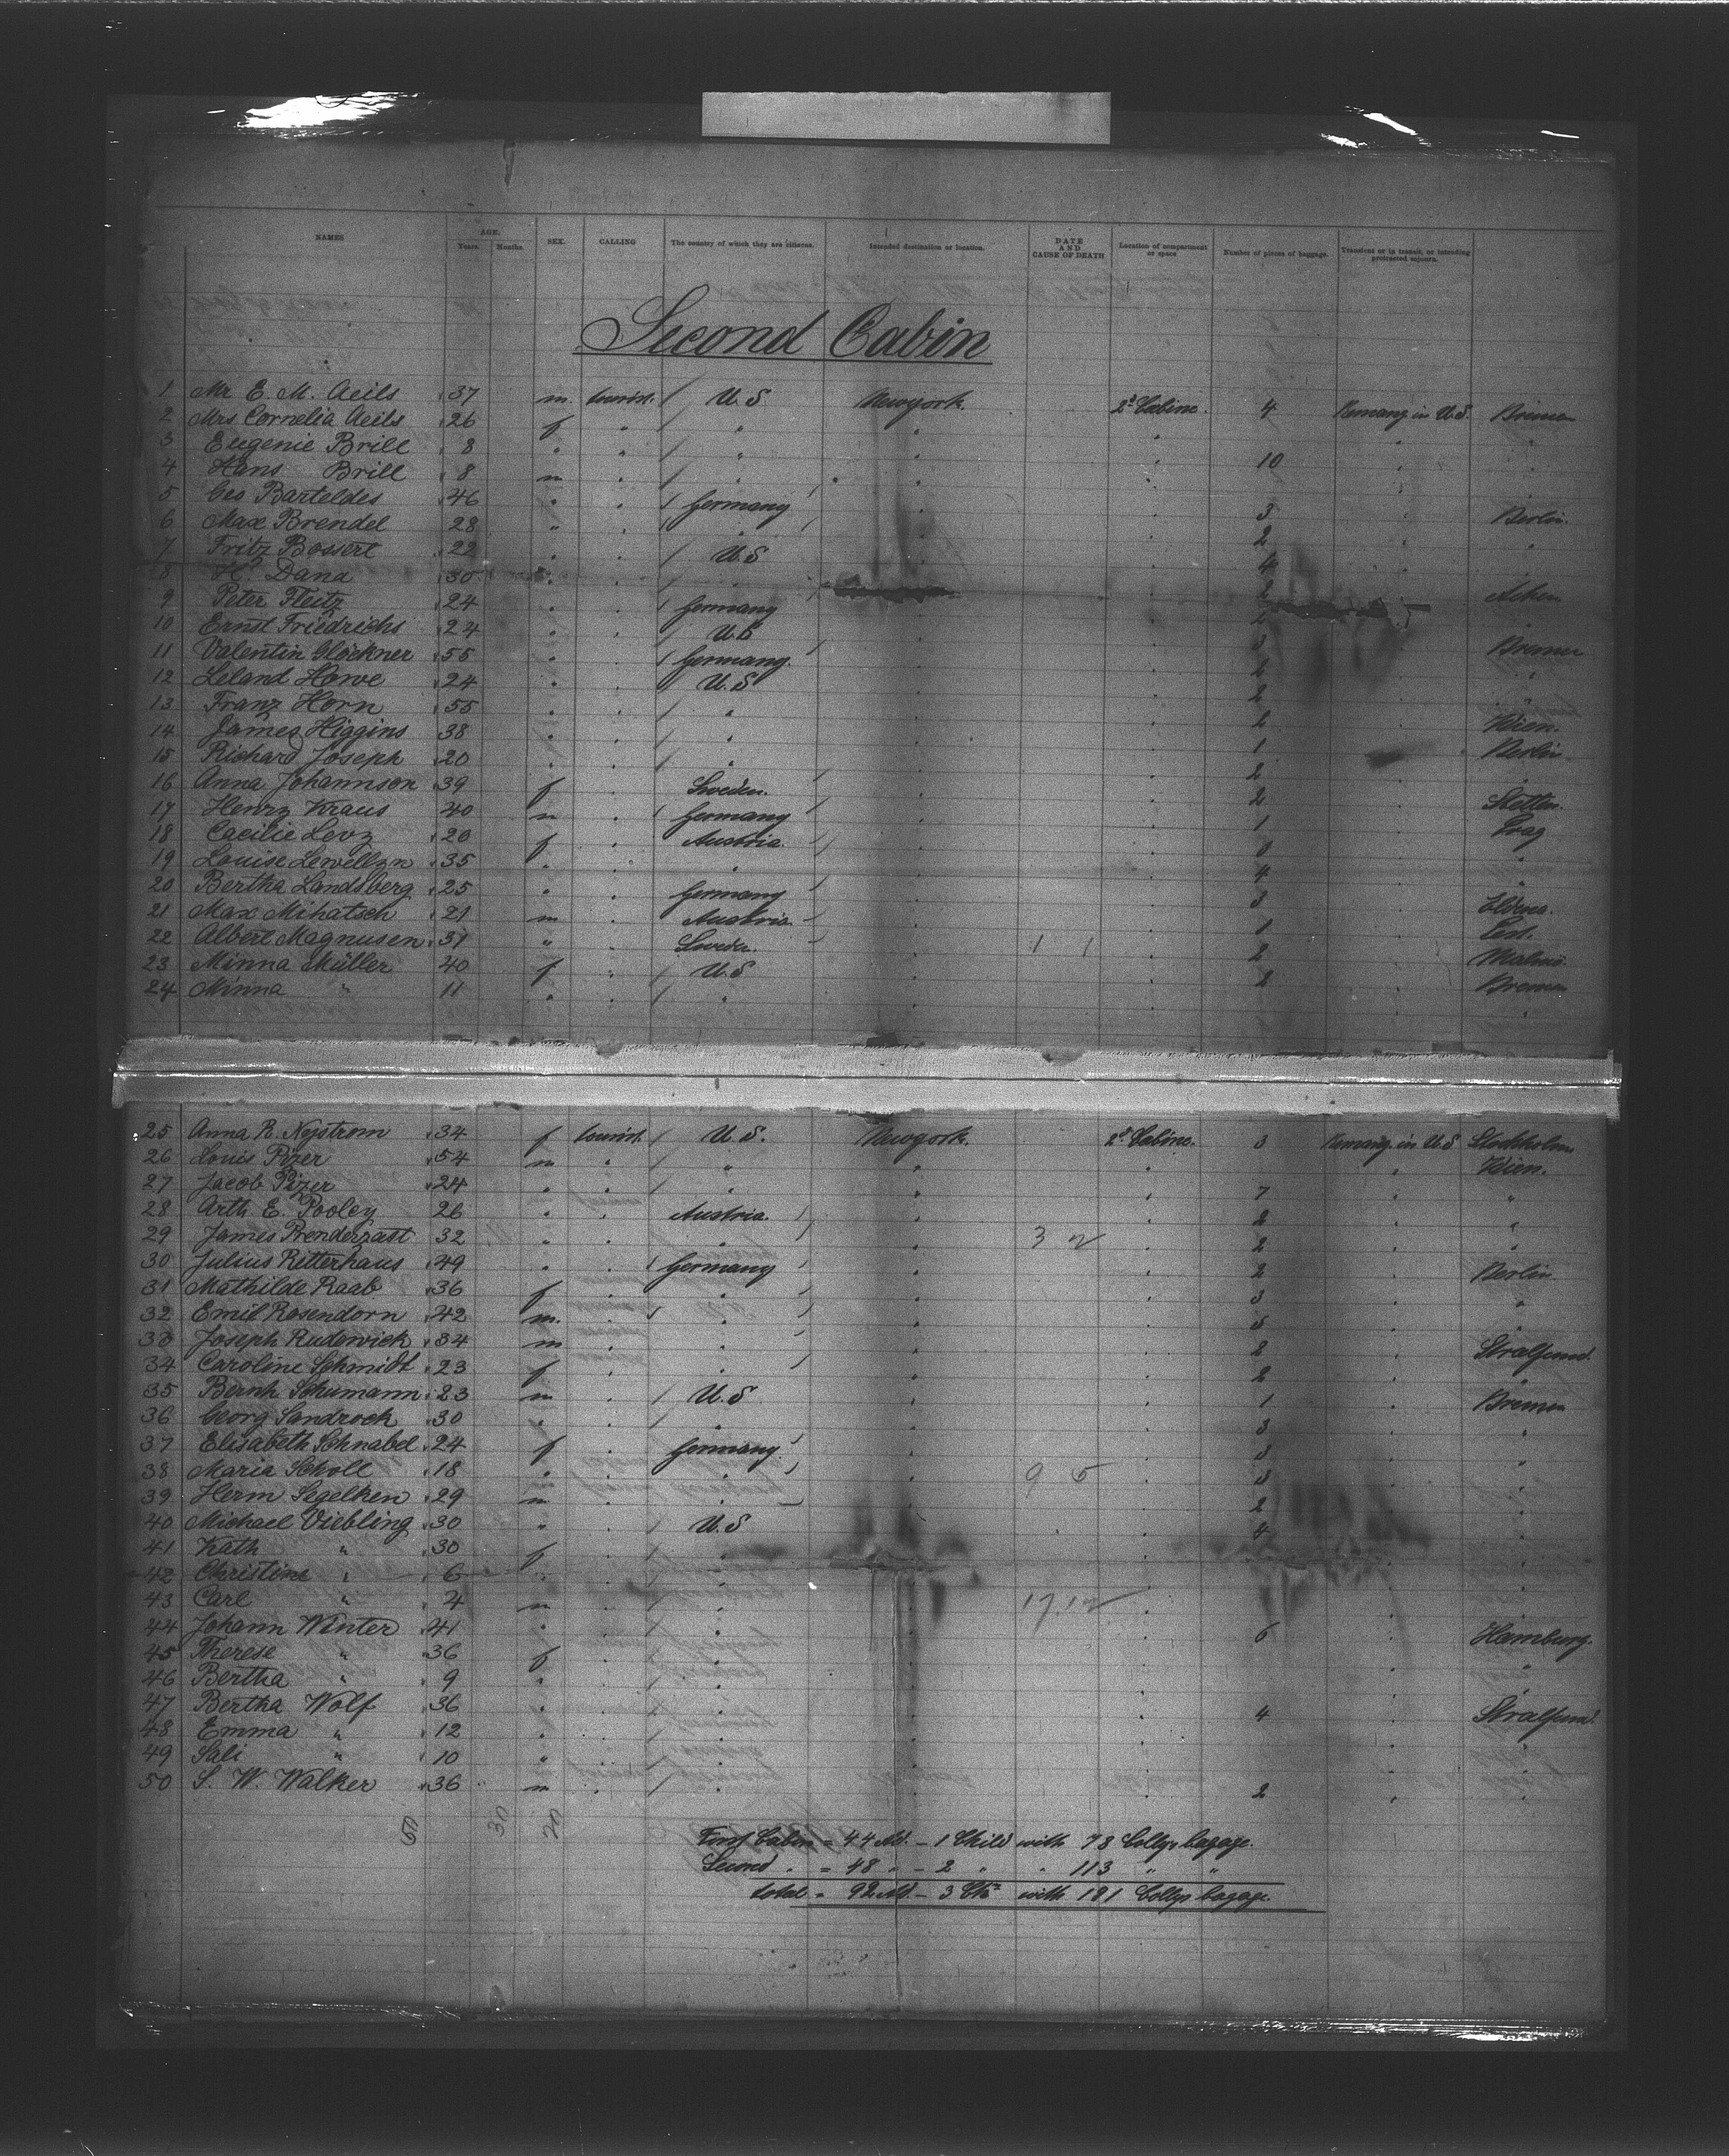 NAMES AGE. Years. Months. SEX. CALLING The country of which they are citizens. Intended destination or location. DATE AND CAUSE OF DEATH Location of compartment or space Number of pieces of baggage. Transient or in transit, or intending protracted sojourn.
Second Cabin
1 Mr E. M. Aeils 37 m. tourist. U.S. Newyork. 2d Cabine. 4 Remang in U.S. Bremen
2 Mrs Cornelia Aeils 26 f " "
3 Eugenie Brill 8 " " " 10
4 Hans Brill 8 m
5 Geo Barteldes 46 " Germany 3 Berlin.
6 Max Brendel 28 " 2
7 Fritz Bossert 22 U.S 4
8 H. Dana 30 2 Achen
9 Peter Fleitz 24 Germany 2
10 Ernst Friedrichs 24 U.S 3 Bremen
11 Valentin Glöckner 55 Germany. 2 "
12 Leland Howe 24 U.S 2 "
13 Franz Horn 55 " 2 Wien.
14 James Higgins 38 " 1 Berlin
15 Richard Joseph 20 " 2
16 Anna Johannson 39 f Sweden. 2 Stettin.
17 Henry Kraus 40 m Germany 1 Prag
18 Caecilie Levy 20 f Austria. "
19 Louise Lewellyn 35 " 4 "
20 Bertha Landsberg 25 " Germany 3
21 Max Mihatsch 21 m Austria 1
22 Albert Magnusen 31 " Sweden. 1 1 2 Malmö.
23 Minna Müller 40 f U.S 2 Bremen
24 Minna " 11 " " "
25 Anna R. Nystrom 34 f tourist. U.S. Newyork. 2d Cabine. 3 Remang in U.S Stockholm
26 Louis Pizer 54 m " " Wien.
27 Jacob Pizer 24 " " 7 "
28 Arth E. Pooley 26 " Austria. 2 "
29 James Prendergast 32 " " 3 2 2 "
30 Julius Ritterhaus 49 " Germany 2 Berlin
31 Mathilde Raab 36 f 3 "
32 Emil Rosendorn 42 m. 5
33 Joseph Rudowick 34 m 2 Stralsund.
34 Caroline Schmidt 23 f 2
35 Bernh Schumann 23 m U.S 1 Bremen
36 Georg Sandrock 30 " 3 "
37 Elisabeth Schnabel 24 f Germany. 3
38 Maria Scholl 18 " 9 5 3
39 Herm Segelken 29 m 2
40 Michael Viebling 30 " U.S 4
41 Kath " 30 f
42 Christine " 6
43 Carl " 4 m 17 12
44 Johann Winter 41 " 6 Hamburg.
45 Therese " 36 f "
46 Bertha " 9 "
47 Bertha Wolf 36 " 4 Stralsund.
48 Emma " 12 "
49 Sali " 10 "
50 S. W. Walker 36 m 2
50 30 20
First Cabin = 44 Ad. - 1 Child with 78 Collys bagage.
Second " = 48 " - 2 " " 113 " "
total = 92 Ad. - 3 Chn with 191 Collys bagage.